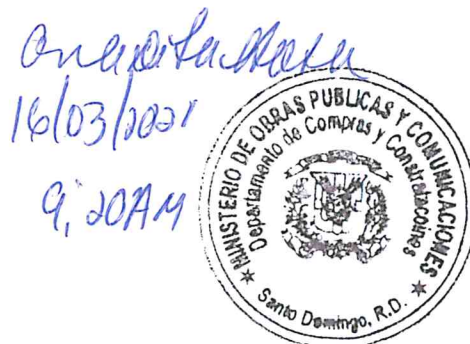 16/03/2021
9:20AM
* MINISTERIO DE OBRAS PUBLICAS Y COMUNICACIONES *
Departamento de Compras y Constrataciones
Santo Domingo, R.D.